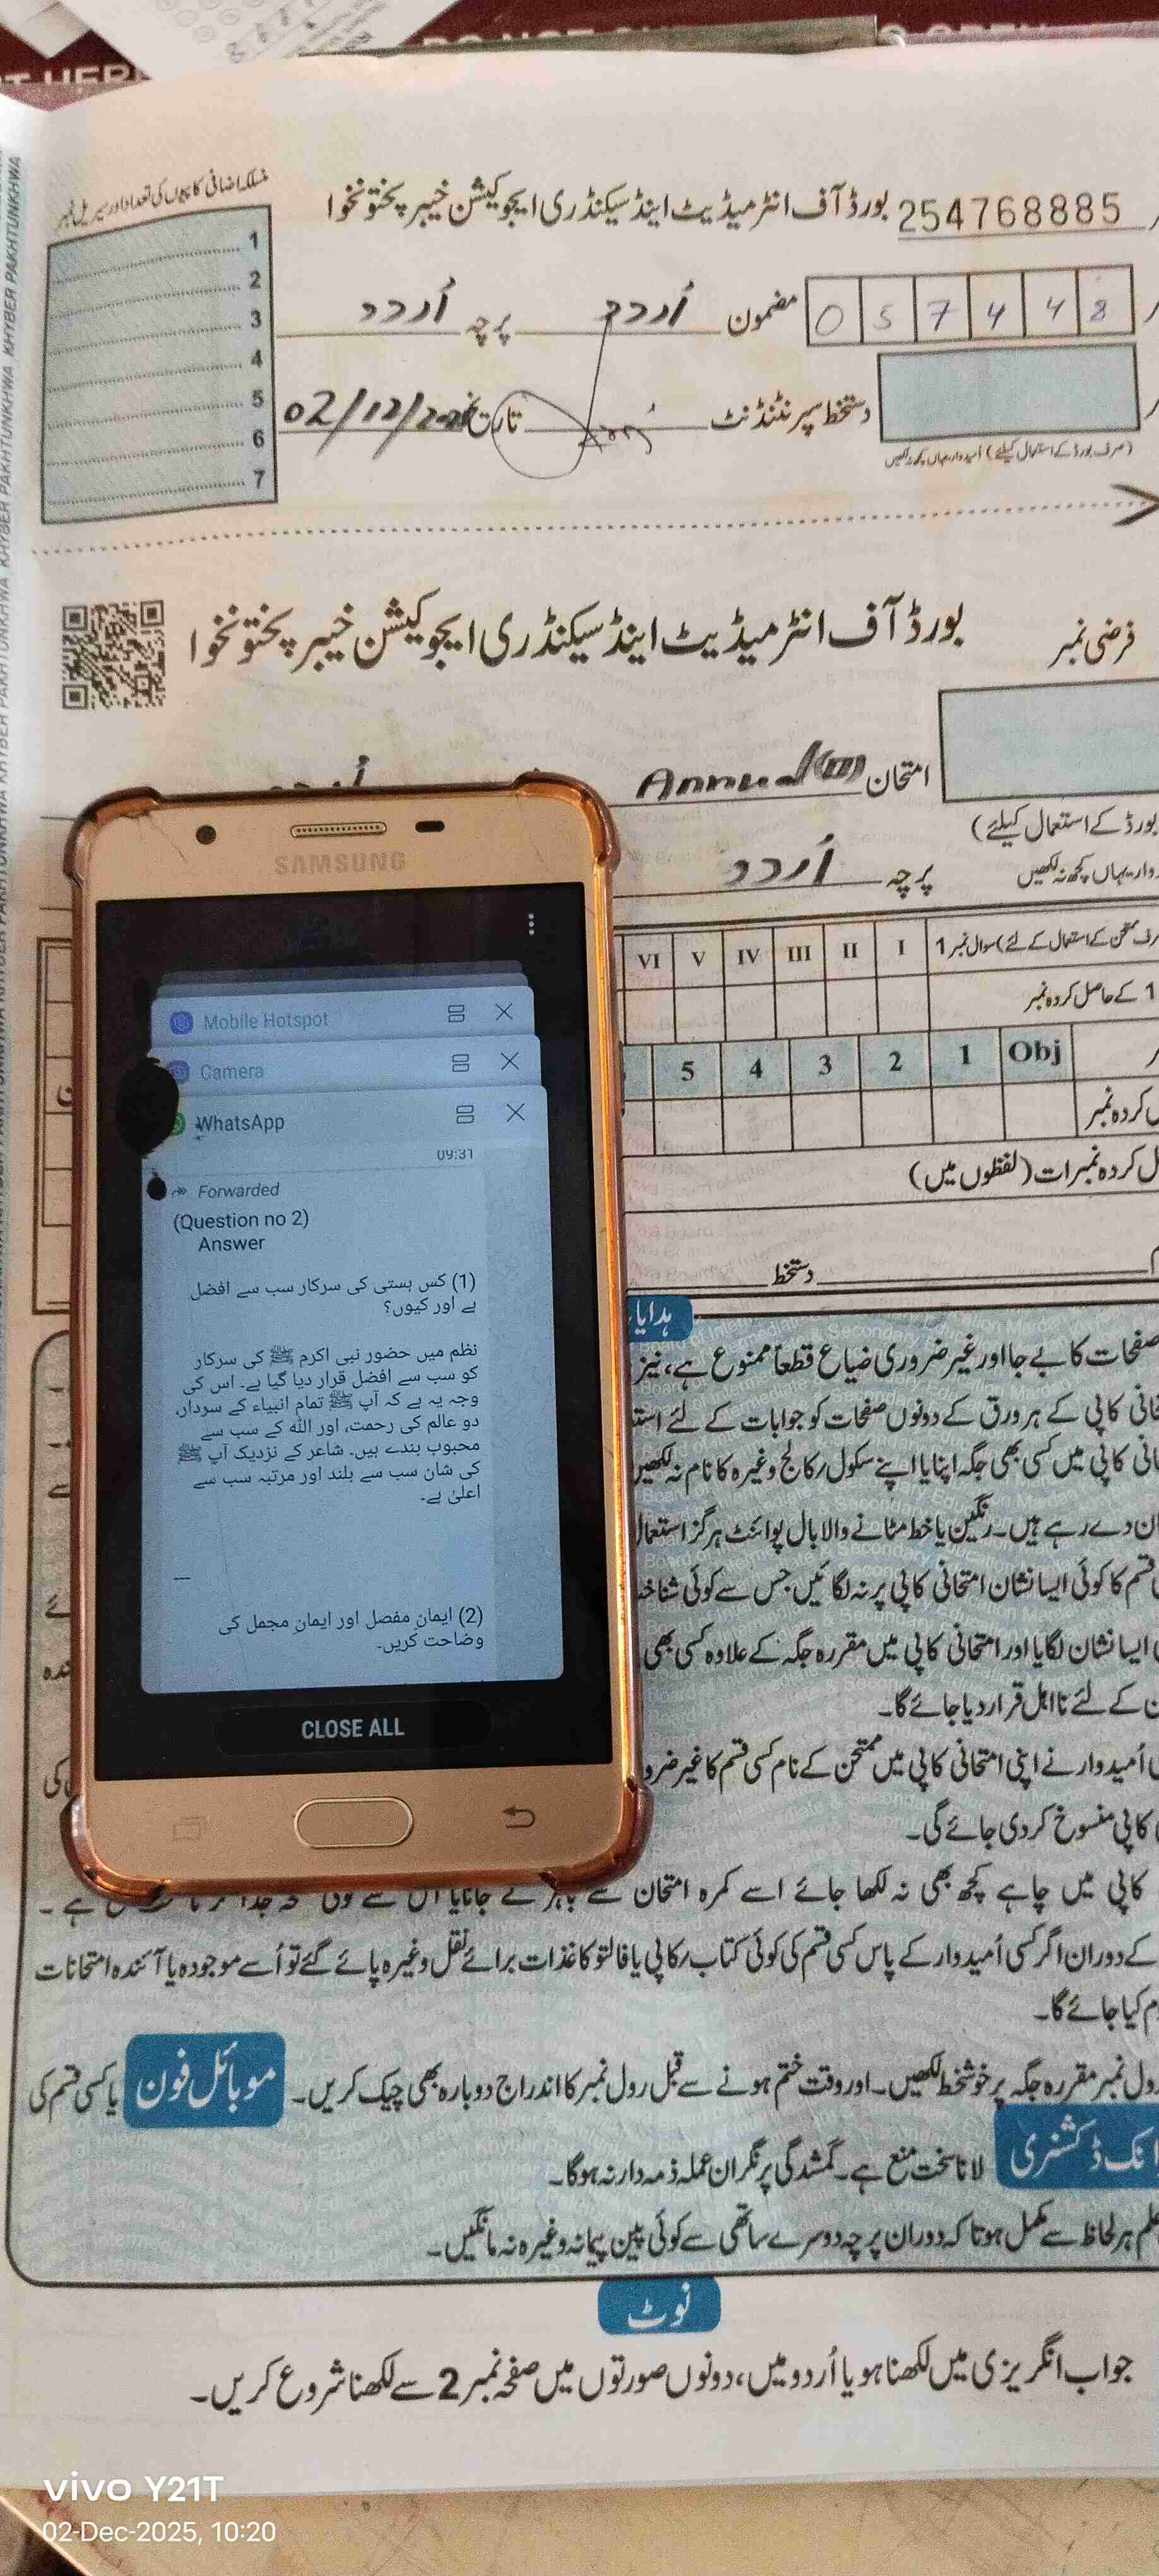 منسلکہ اضافی کاپیوں کی تعداد اور سیریل نمبر
1
2
3
4
5
6
7
بورڈ آف انٹرمیڈیٹ اینڈ سیکنڈری ایجوکیشن خیبر پختونخوا 254768885
0 5 7 4 4 8
مضمون اُردو پرچہ اُردو
دستخط سپرنٹنڈنٹ تاریخ 02/12/
(صرف بورڈ کے استعمال کیلئے) اُمیدوار یہاں کچھ نہ لکھیں
KHYBER PAKHTUNKHWA KHYBER PAKHTUNKHWA
بورڈ آف انٹرمیڈیٹ اینڈ سیکنڈری ایجوکیشن خیبر پختونخوا
فرضی نمبر
امتحان Annual
بورڈ کے استعمال کیلئے)
یہاں کچھ نہ لکھیں
پرچہ اُردو
ممتحن کے استعمال کے لئے) سوال نمبر 1 I II III IV V VI
1 کے حاصل کردہ نمبر
Obj 1 2 3 4 5
کردہ نمبر
کردہ نمبرات (لفظوں میں)
دستخط
SAMSUNG
Mobile Hotspot
Camera
WhatsApp
09:31
Forwarded
(Question no 2)
Answer
(1) کس ہستی کی سرکار سب سے افضل
ہے اور کیوں؟
نظم میں حضور نبی اکرم ﷺ کی سرکار
کو سب سے افضل قرار دیا گیا ہے۔ اس کی
وجہ یہ ہے کہ آپ ﷺ تمام انبیاء کے سردار،
دو عالم کی رحمت، اور اللہ کے سب سے
محبوب بندے ہیں۔ شاعر کے نزدیک آپ ﷺ
کی شان سب سے بلند اور مرتبہ سب سے
اعلیٰ ہے۔
—
(2) ایمانِ مفصل اور ایمانِ مجمل کی
وضاحت کریں۔
CLOSE ALL
صفحات کا بے جا اور غیر ضروری ضیاع قطعاً ممنوع ہے، نیز
کاپی کے ہر ورق کے دونوں صفحات کو جوابات کے لئے
کاپی میں کسی بھی جگہ اپنا یا اپنے سکول رکالج وغیرہ کا نام نہ لکھیں
دے رہے ہیں۔ رنگین یا خط مٹانے والا بال پوائنٹ ہرگز استعمال
قسم کا کوئی ایسا نشان امتحانی کاپی پر نہ لگائیں جس سے کوئی
ایسا نشان لگایا اور امتحانی کاپی میں مقررہ جگہ کے علاوہ کسی بھی
کے لئے نااہل قرار دیا جائے گا۔
اُمیدوار نے اپنی امتحانی کاپی میں ممتحن کے نام کسی قسم کا غیر
کاپی منسوخ کردی جائے گی۔
کاپی میں چاہے کچھ بھی نہ لکھا جائے اسے کمرہ امتحان سے باہر لے جانا
کے دوران اگر کسی اُمیدوار کے پاس کسی قسم کی کوئی کتاب رکاپی یا فالتو کاغذات برائے نقل وغیرہ پائے گئے تو اُسے موجودہ یا آئندہ امتحانات
کیا جائے گا۔
رول نمبر مقررہ جگہ پر خوشخط لکھیں۔ اور وقت ختم ہونے سے قبل رول نمبر کا اندراج دوبارہ بھی چیک کریں۔ موبائل فون یا کسی قسم کی
ڈکشنری لانا سخت منع ہے۔ گمشدگی پر نگران عملہ ذمہ دار نہ ہوگا۔
ہر لحاظ سے مکمل ہو تا کہ دوران پرچہ دوسرے ساتھی سے کوئی پین پیمانہ وغیرہ نہ مانگیں۔
نوٹ
جواب انگریزی میں لکھنا ہو یا اُردو میں، دونوں صورتوں میں صفحہ نمبر 2 سے لکھنا شروع کریں۔
vivo Y21T
02-Dec-2025, 10:20